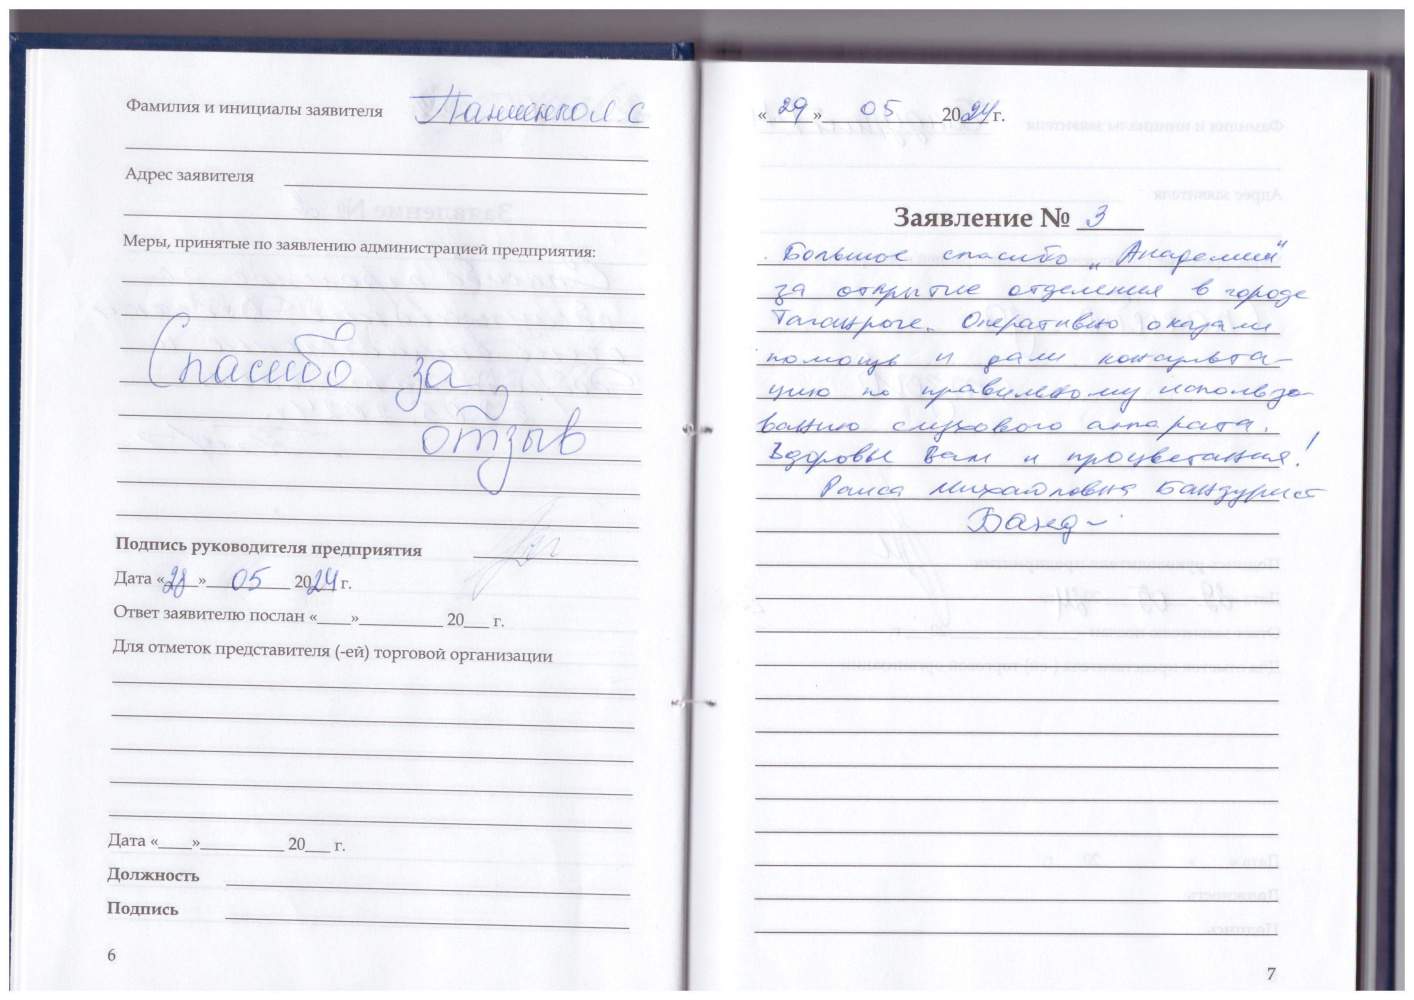 Фамилия и инициалы заявителя Панченко Л. С
Адрес заявителя
Меры, принятые по заявлению администрацией предприятия:
Спасибо за
отзыв
Подпись руководителя предприятия
Дата «28» 05 2024 г.
Ответ заявителю послан «____»__________ 20___ г.
Для отметок представителя (-ей) торговой организации
Дата «____»__________ 20___ г.
Должность
Подпись
6
«29» 05 2024 г.
Заявление № 3
Большое спасибо „Академии"
за открытие отделения в городе
Таганроге. Оперативно оказали
помощь и дали консульта-
цию по правильному использо-
ванию слухового аппарата.
Здоровья Вам и процветания!
Раиса Михайловна Бандурист
7